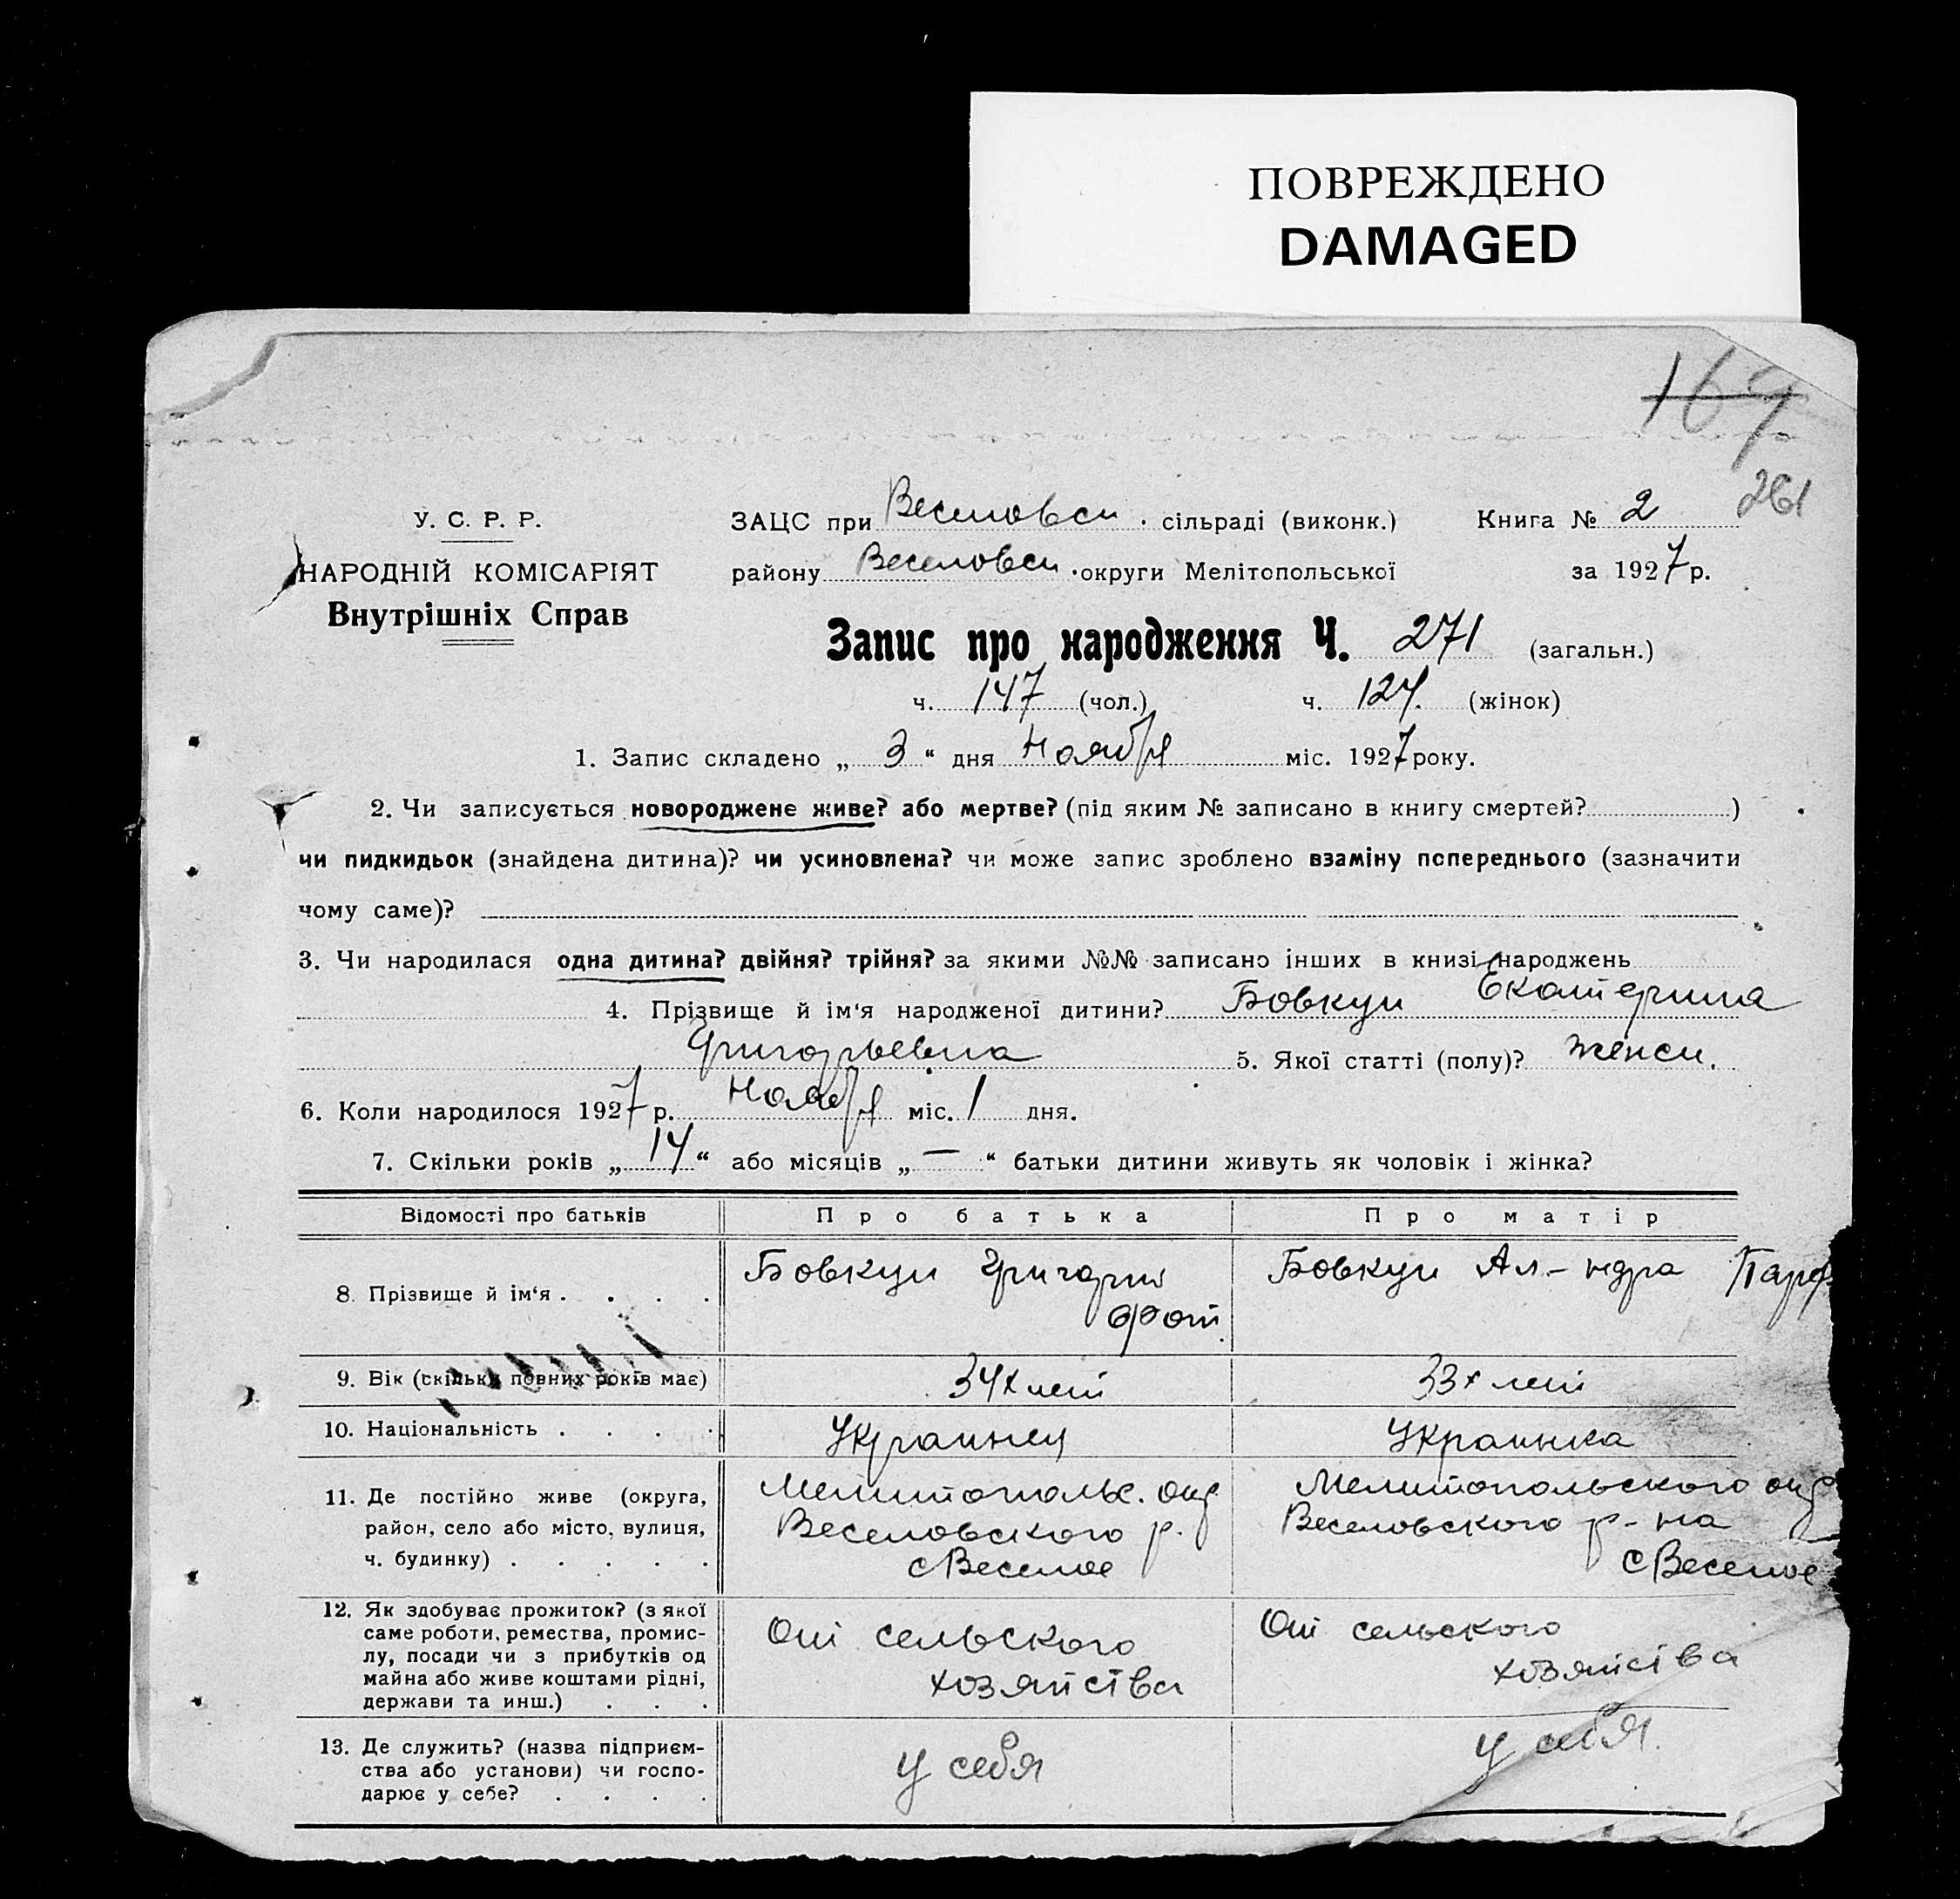 ПОВРЕЖДЕНО
DAMAGED
169
261
У. С. Р. Р.
НАРОДНІЙ КОМІСАРІЯТ
Внутрішніх Справ
ЗАЦС при Веселовск. сільраді (виконк.) Книга № 2
району Веселовск. округи Мелітопольської за 1927 р.
Запис про народження Ч. 271 (загальн.)
ч. 147 (чол.) ч. 124. (жінок)
1. Запис складено „ 3 “ дня Ноября міс. 1927 року.
2. Чи записується новороджене живе? або мертве? (під яким № записано в книгу смертей? )
чи пидкидьок (знайдена дитина)? чи усиновлена? чи може запис зроблено взаміну попереднього (зазначити
чому саме)?
3. Чи народилася одна дитина? двійня? трійня? за якими №№ записано інших в книзі народжень
4. Прізвище й ім‘я народженої дитини? Бовкун Екатерина
Григорьевна 5. Якої статті (полу)? женск.
6. Коли народилося 1927 р. Ноября міс. 1 дня.
7. Скільки років „ 14 “ або місяців „ — “ батьки дитини живуть як чоловік і жінка?
Відомості про батьків Про батька Про матір
8. Прізвище й ім‘я . . . . Бовкун Григорий Бовкун Ал-ндра Парф
Фот
9. Вік (скільки повних років має) 34х лет 33х лет
10. Національність . . . . Украинец Украинка
11. Де постійно живе (округа, Мелитопольс. окр Мелитопольского окр
район, село або місто, вулиця, Веселовского р. Веселовского р-на
ч. будинку) . . . . . с Веселое с Веселое
12. Як здобуває прожиток? (з якої
саме роботи, ремества, промис- От сельского От сельского
лу, посади чи з прибутків од
майна або живе коштами рідні, хозяйства хозяйства
держави та инш.) . . .
13. Де служить? (назва підприєм-
ства або установи) чи госпо- у себя у себя.
дарює у себе? . . . .